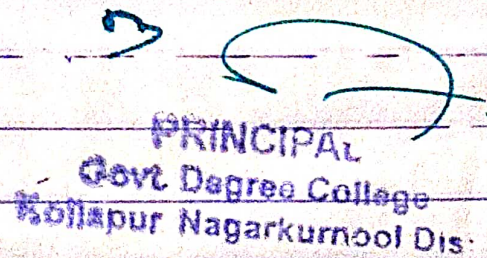 PRINCIPAL
Govt Degree College
Kollapur Nagarkurnool Dis: